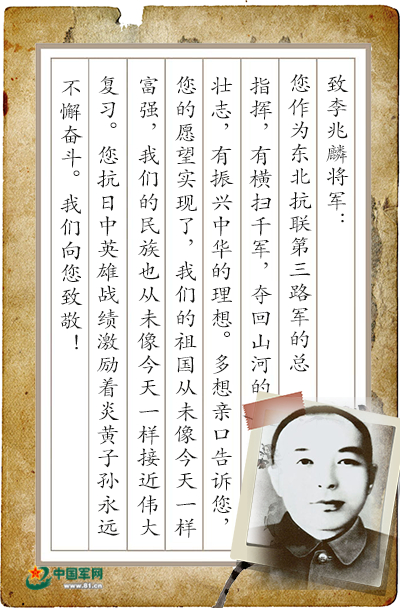 致李兆麟将军：
您作为东北抗联第三路军的总
指挥，有横扫千军，夺回山河的
壮志，有振兴中华的理想。多想亲口告诉您，
您的愿望实现了，我们的祖国从未像今天一样
富强，我们的民族也从未像今天一样接近伟大
复习。您抗日中英雄战绩激励着炎黄子孙永远
不懈奋斗。我们向您致敬！
中国军网
www.81.cn